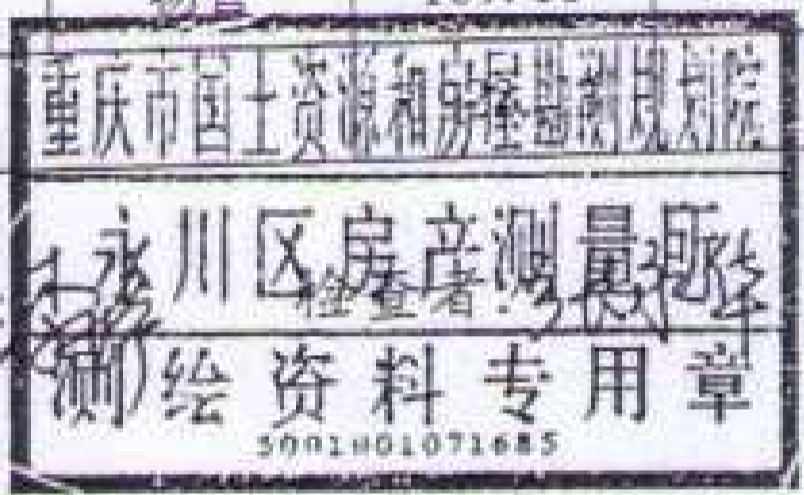 重庆市国土资源和房屋勘测规划院
永川区房产测量所
检查者:
测绘资料专用章
5001001071685